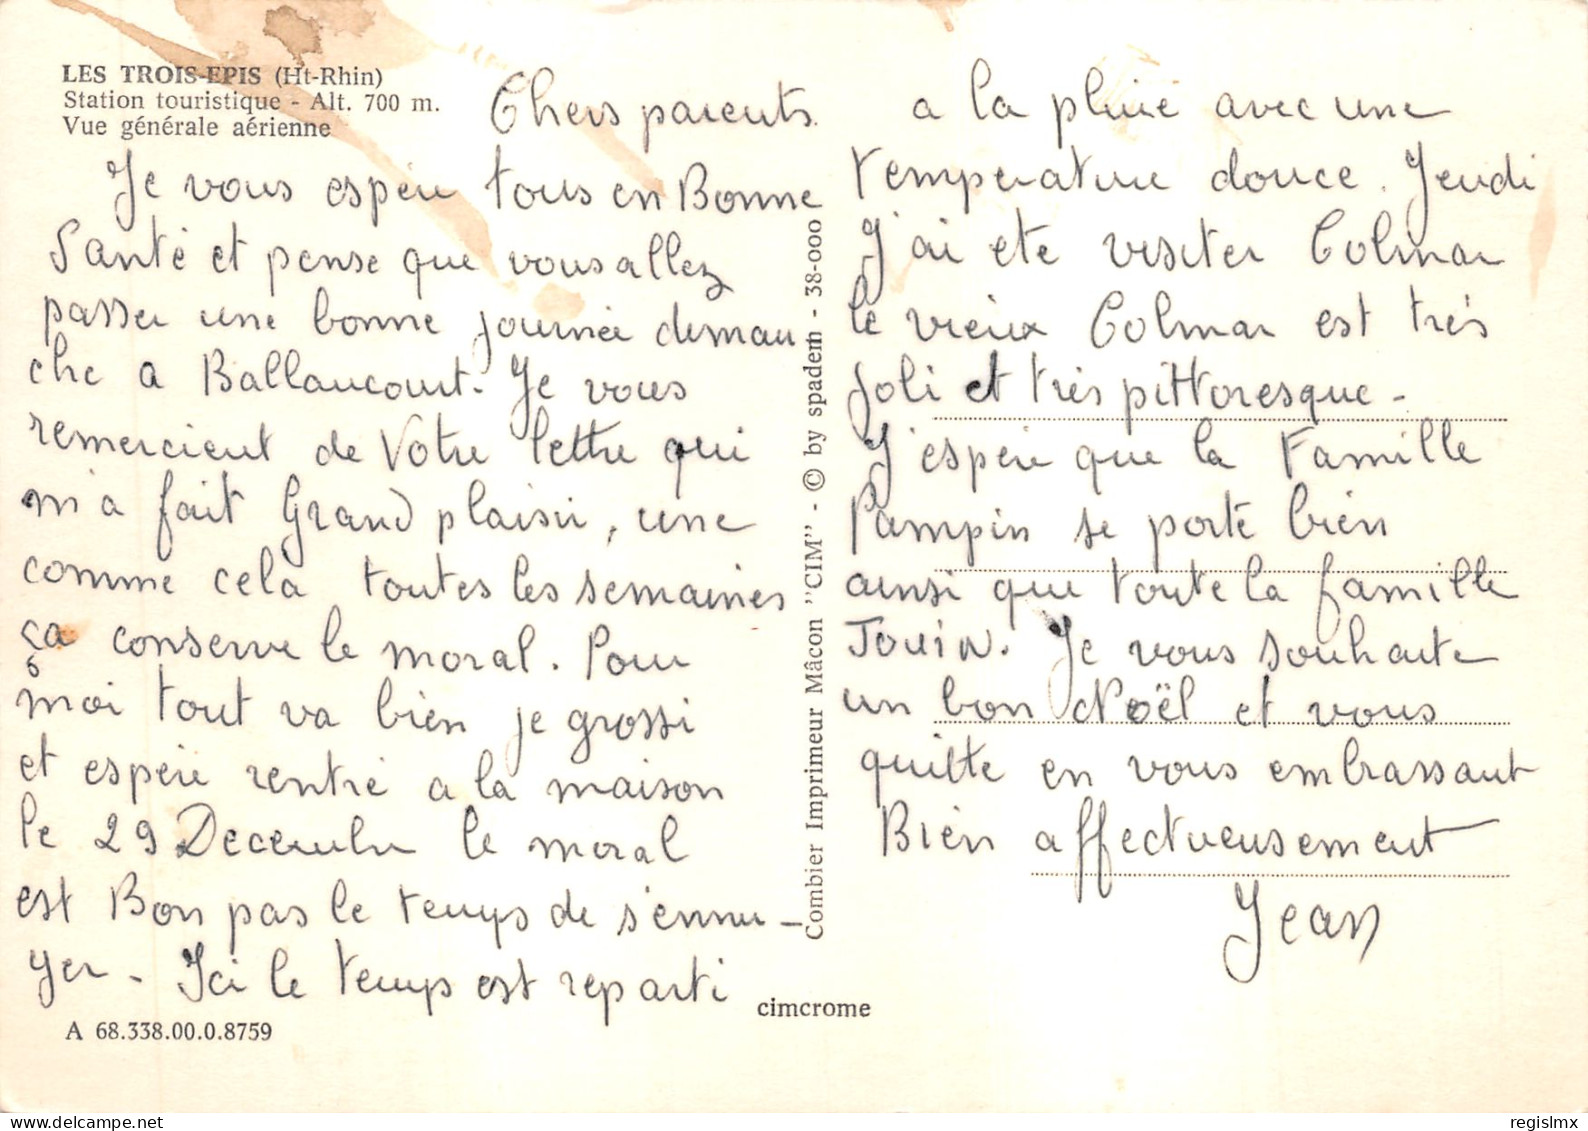 LES TROIS-EPIS (Ht-Rhin)
Station touristique - Alt. 700 m.
Vue générale aérienne
Chers parents
Je vous espère tous en Bonne
Santé et pense que vous allez
passer une bonne journée diman
che a Ballancourt. Je vous
remercient de Votre lettre qui
m'a fait Grand plaisir, une
comme cela toutes les semaines
ça conserve le moral. Pour
moi tout va bien je grossi
et espère rentré a la maison
le 29 Decembre le moral
est Bon pas le temps de s'ennu-
yer - Ici le temps est reparti
A 68.338.00.0.8759
Combier Imprimeur Mâcon "CIM" - © by spadem - 38-000
cimcrome
a la pluie avec une
température douce. Jeudi
J'ai eté visiter Colmar
le vieux Colmar est très
Joli et très pittoresque -
J'espère que la Famille
Pampin se porte bien
ainsi que toute la famille
Jouin. Je vous souhaite
un bon Noël et vous
quitte en vous embrassant
Bien affectueusement
Jean
regislmx